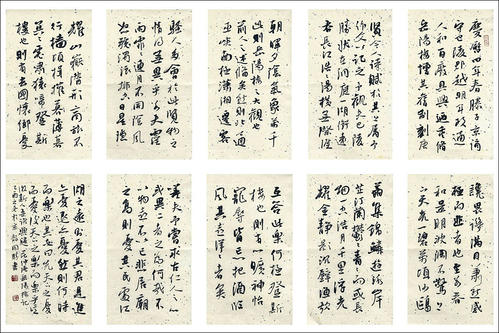 慶曆四年春滕子京謫
守巴陵郡越明年政通
人和百廢具興乃重修
岳陽樓增其舊制刻唐
賢今人詩賦於其上屬予
作文以記之予觀夫巴陵
勝狀在洞庭一湖銜遠山
吞長江浩浩湯湯橫無際涯
朝暉夕陰氣象萬千
此則岳陽樓之大觀也
前人之述備矣然則北通
巫峽南極瀟湘遷客
騷人多會於此覽物之
情得無異乎若夫霪
雨霏霏連月不開陰風
怒號濁浪排空日星隱
耀山岳潛形商旅不
行檣傾楫摧薄暮冥
冥虎嘯猿啼登斯
樓也則有去國懷鄉憂
讒畏譏滿目蕭然感
極而悲者也至若春
和景明波瀾不驚上
下天光一碧萬頃沙鷗
翔集錦鱗游泳岸
芷汀蘭郁郁青青而或長
煙一空皓月千里浮光
耀金靜影沉璧漁歌
互答此樂何極登斯
樓也則有心曠神怡
寵辱皆忘把酒臨
風其喜洋洋者矣
嗟夫予嘗求古仁人之心
或異二者之為何哉不
以物喜不以己悲居廟堂
之高則憂其民處江
湖之遠則憂其君是進
亦憂退亦憂然則何時
而樂耶其必曰先天下之憂
而憂後天下之樂而樂乎噫
微斯人吾誰與歸